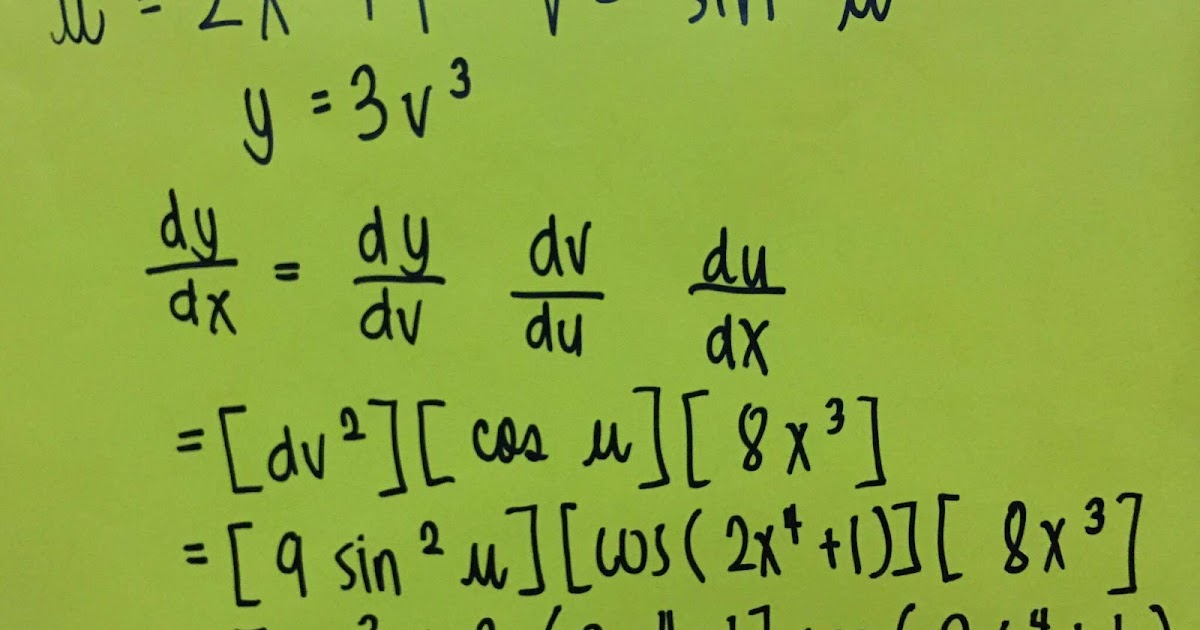 u = 2x⁴ + 1 v = sin u
y = 3v³
dy/dx = dy/dv dv/du du/dx
= [dv²][cos u][8x³]
= [9 sin² u][cos(2x⁴+1)][8x³]